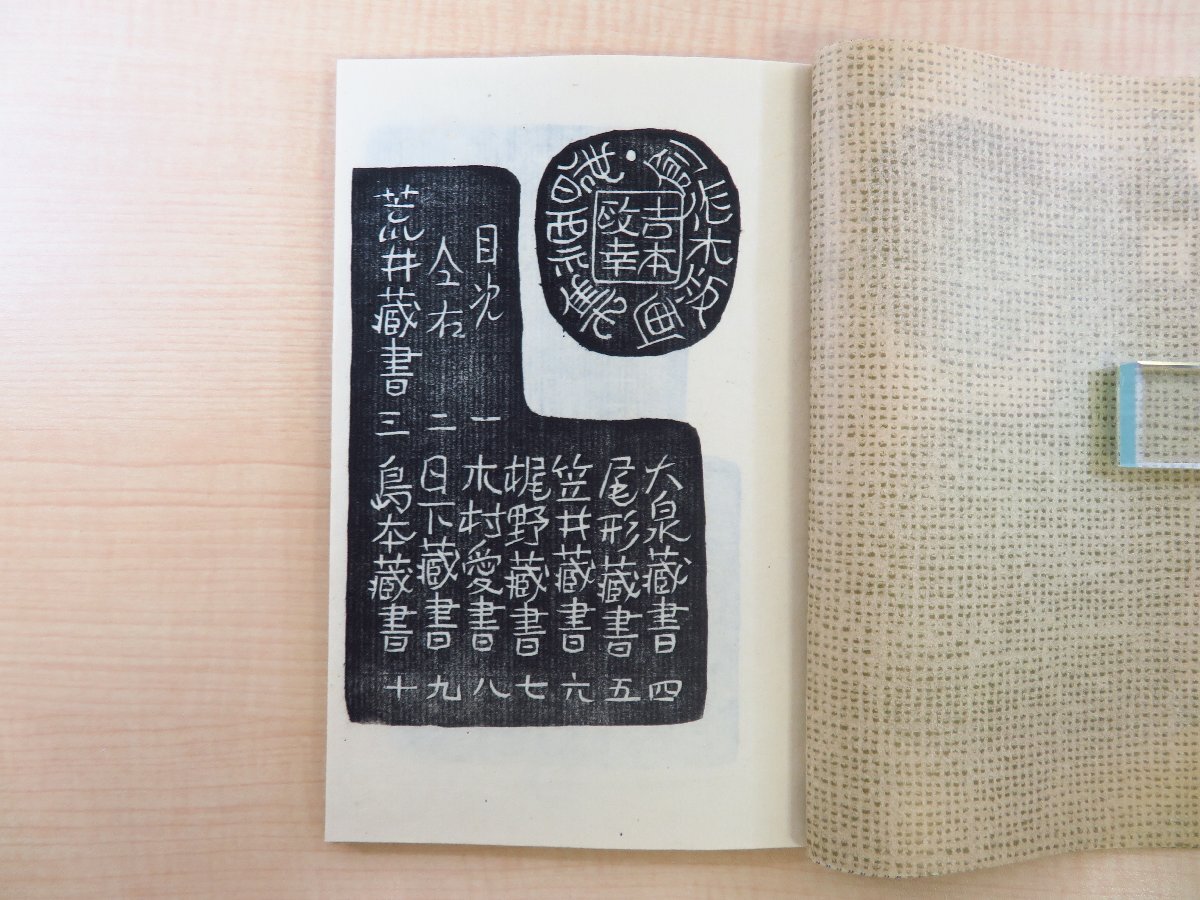 吉本
政幸
目次 一
仝右 二
荒井藏書 三
大泉藏書 四
尾形藏書 五
笠井藏書 六
梶野藏書 七
木村愛書 八
日下藏書 九
島本藏書 十